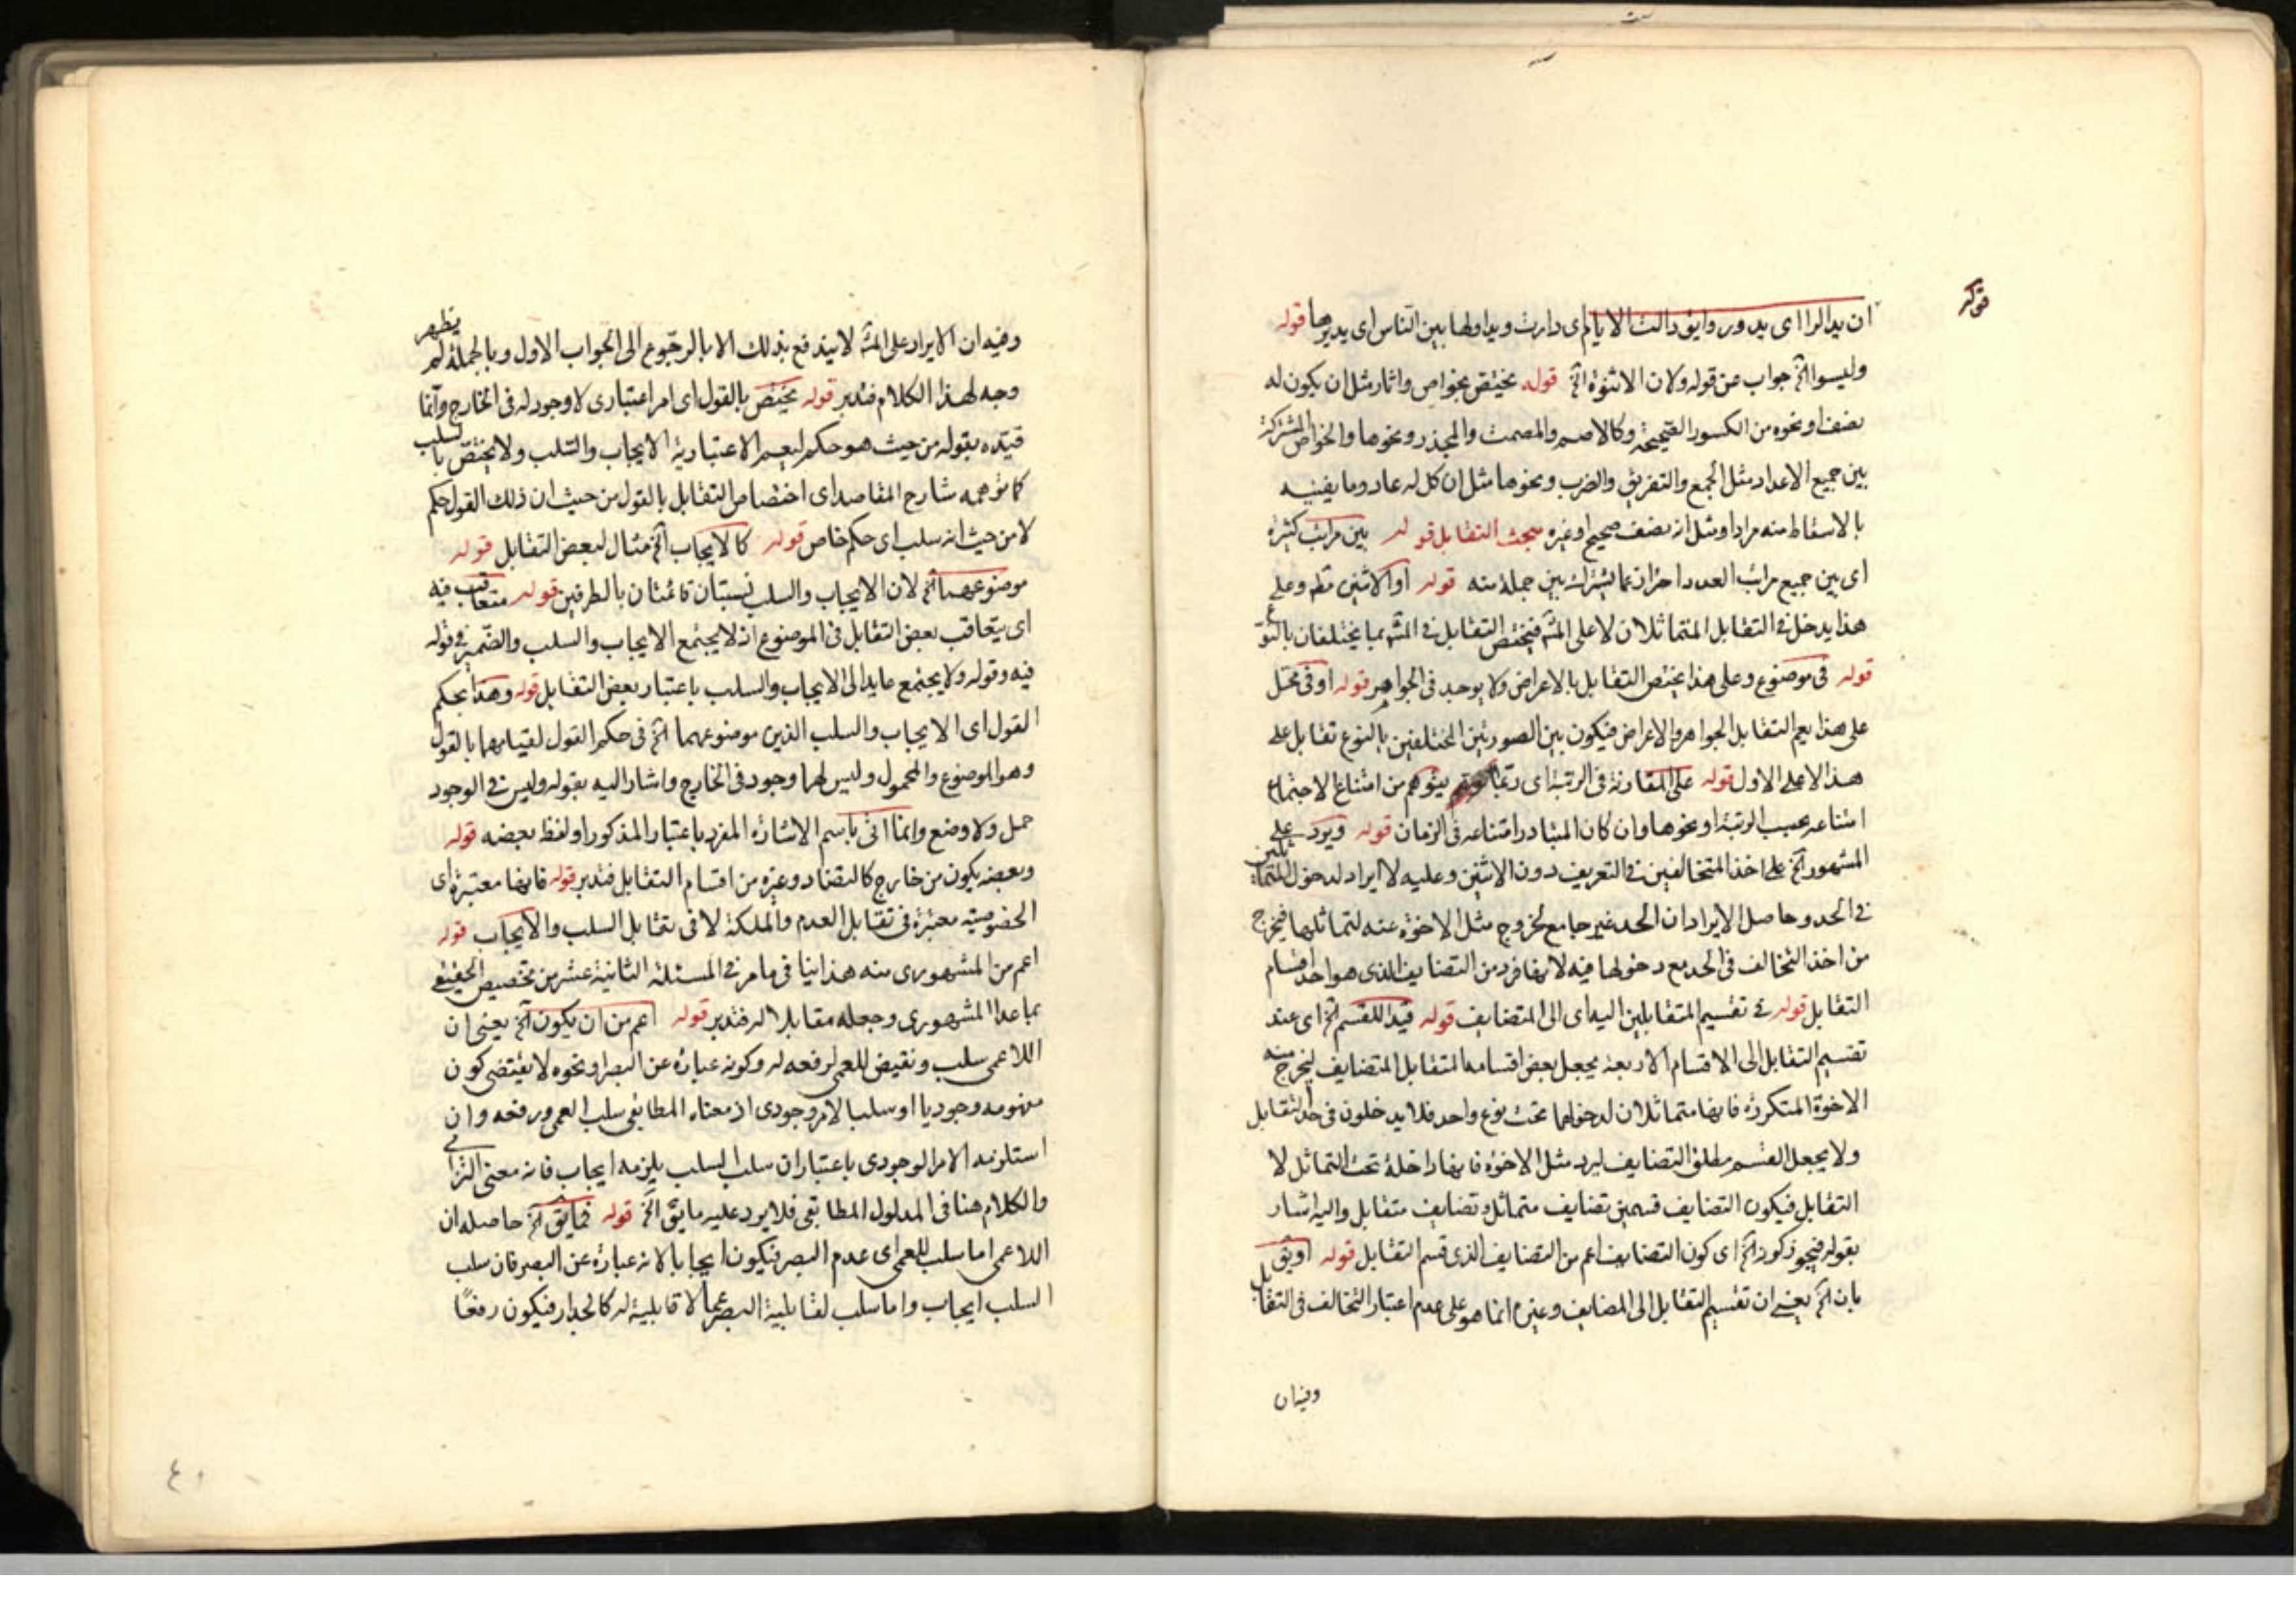 قوله
ان يدالرا اى يدور وايق دالت الايام اى دارت ويداولها بين الناس اى يديرها قوله
وليسوا الخ جواب من قوله ولان الاثنوة الخ قوله يختص بخواص واثار مثل ان يكون له
نصف او نحوه من الكسور الصحيحة وكالاصم والمصمت والمجذر ونحوها والخواص المشتركة
بين جميع الاعداد مثل الجمع والتفريق والضرب ونحوها مثل ان كل له عاد وما يفنيه
بالاسقاط منه مرادا ومثل انه نصف صحيح اوغيره مبحث التقابل قوله بين مراتب كثيرة
اى بين جميع مراتب العدد احترازعما يشترك بين جملة منه قوله اوالاثنين تطم وعلى
هذا يدخل فى التقابل المتماثلان لا على المش فيختص التقابل فى المش بما يختلفان بالنوع
قوله فى موضوع وعلى هذا يختص التقابل بالاعراض ولا يوجد فى الجواهر قوله اوفى محل
على هذا يعم التقابل الجواهر والاعراض فيكون بين الصورتين المختلفين بالنوع تقابل على
هذا لا على الاول قوله على المقارنة فى الرتبة اى ربما يتوهم من امتناع الاجتماع
امتناعه بحسب الرتبة او نحوها وان كان المتبادر امتناعه فى الزمان قوله ويرد على
المشهور الخ على اخذ المتخالفين فى التعريف دون الاثنين وعليه لا ايراد لدخول المتماثلين
فى الحد وحاصل الايراد ان الحد غير جامع لخروج مثل الاخوة عنه لتماثلها فيخرج
من اخذ التخالف فى الحد مع دخولها فيه لانها فرد من التضايف الذى هو احد اقسام
التقابل قوله فى تقسيم المتقابلين اليه اى الى المتضايف قوله قيدا للقسم الخ اى عند
تقسيم التقابل الى الاقسام الاربعة يجعل بعض اقسامه المتقابل المتضايف ليخرج منه
الاخوة المتكررة فانها متماثلان لدخولهما تحت نوع واحد فلا يدخلون فى حد التقابل
ولا يجعل القسم مطلق التضايف ليرد مثل الاخوة فانها داخلة تحت التماثل لا
التقابل فيكون التضايف قسمين تضايف متماثل وتضايف متقابل واليه اشار
بقوله فيجوز كون الخ اى كون التضايف اعم من التضايف الذى قسم التقابل قوله اويق
بان الخ يعنى ان تقسيم التقابل الى المضايف وغيره انما هو على عدم اعتبار التخالف فى التقابل
وفيه ان
وفيه ان الايراد على المش لا يندفع بذلك الا بالرجوع الى الجواب الاول وبالجملة لم يظهر
وجه لهذا الكلام فتدبر قوله يختص بالقول اى امر اعتبارى لا وجود له فى الخارج وانما
قيده بقوله من حيث هو حكم ليعم الاعتبارية الايجاب والسلب ولا يختص بالسلب
كما توهمه شارح المقاصد اى اختصاص التقابل بالقول من حيث ان ذلك القول حكم
لا من حيث انه سلب اى حكم خاص قوله كالايجاب الخ مثال لبعض التقابل قوله
موضوعهما الخ لان الايجاب والسلب نسبتان قائمتان بالطرفين قوله متعاقب فيه
اى يتعاقب بعض التقابل فى الموضوع اذ لا يجتمع الايجاب والسلب والضمير فى قوله
فيه وقوله ولا يجتمع عايد الى الايجاب والسلب باعتبار بعض التقابل قوله وهذا بحكم
القول اى الايجاب والسلب الذين موضوعهما الخ فى حكم القول لقيامهما بالقول
وهو الموضوع والمحمول وليس لهما وجود فى الخارج واشار اليه بقوله وليس فى الوجود
حمل ولا وضع وانما اتى باسم الاشارة المفرد باعتبار المذكور او لفظ بعضه قوله
وبعضه يكون من خارج كالتضاد وغيره من اقسام التقابل فتدبر قوله فانها معتبرة اى
الخصوصية معتبرة فى تقابل العدم والملكة لا فى تقابل السلب والايجاب قوله
اعم من المشهورى منه هذا ينافى ما مر فى المسئلة الثانية عشر من تخصيص الحقيقى
بماعدا المشهورى وجعله مقابلا له فتدبر قوله اعم من ان يكون الخ يعنى ان
اللاعمى سلب ونقيض للعمى لرفعه له وكونه عبارة عن البصر او نحوه لا يقتضى كون
مفهومه وجوديا او سلبا لامر وجودى اذ معناه المطابقى سلب العمى ورفعه وان
استلزمه الامر الوجودى باعتبار ان سلب السلب يلزمه ايجاب فانه معنى التزامى
والكلام هنا فى المدلول المطابقى فلا يرد عليه ما يق الخ قوله فما يق الخ حاصله ان
اللاعمى اما سلب للعمى اى عدم البصر فيكون ايجابا لانه عبارة عن البصر فان سلب
السلب ايجاب واما سلب لقابلية البصر عما لا قابلية له كالجدار فيكون رفعًا